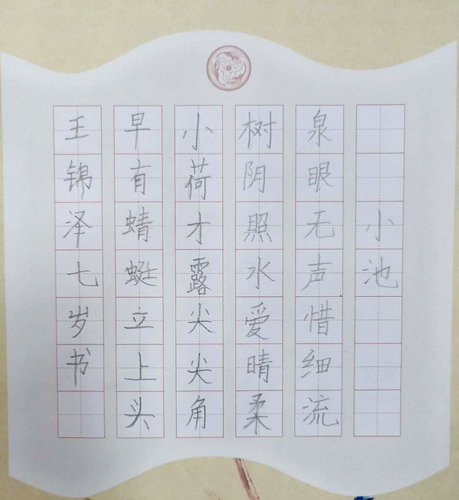 小池
泉眼无声惜细流
树阴照水爱晴柔
小荷才露尖尖角
早有蜻蜓立上头
王锦泽七岁书